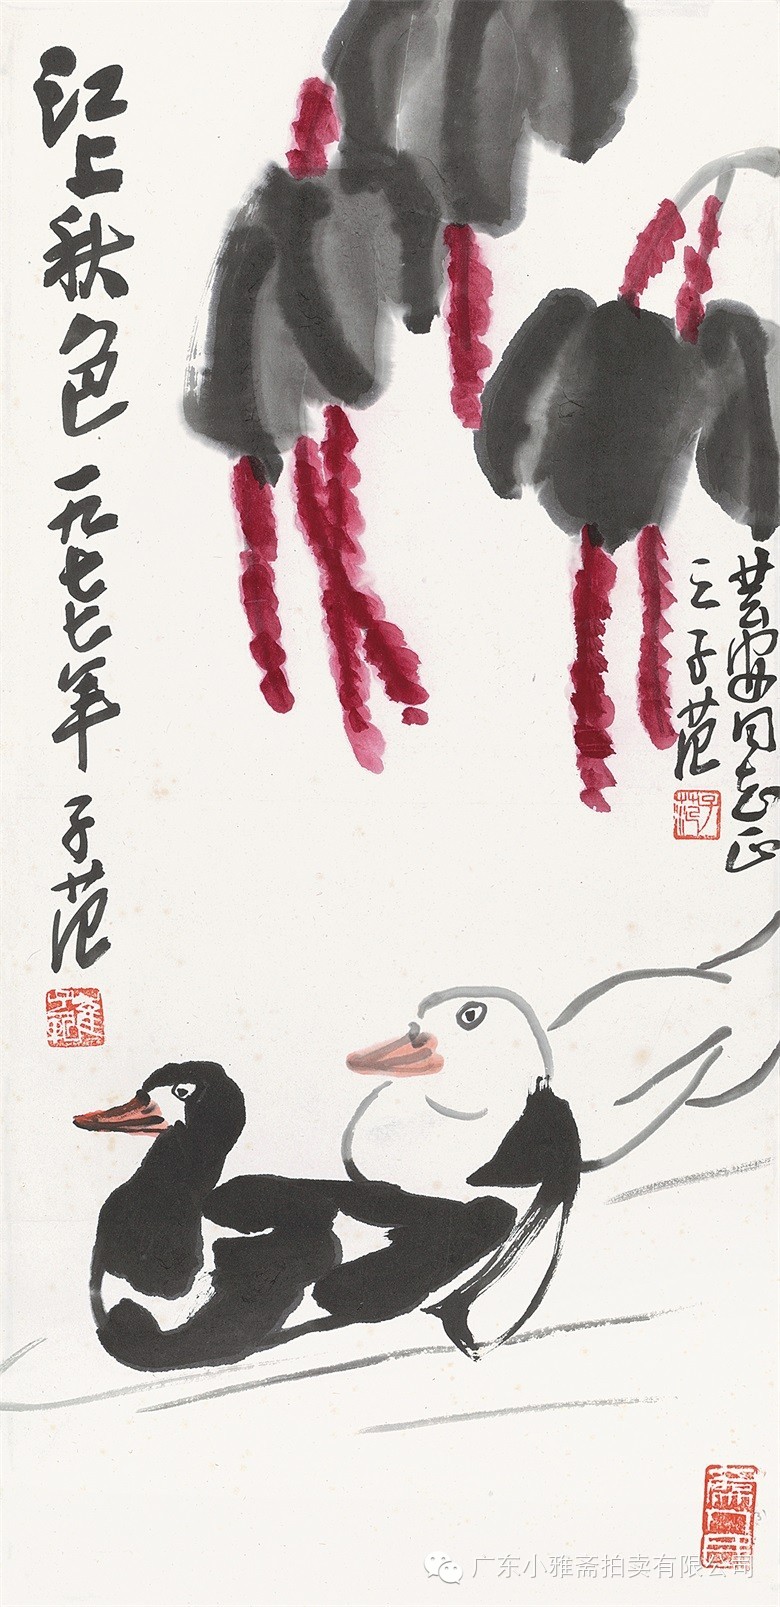 江上秋色 一九七七年 子范
芸安同志正
之 子范
子范
崔子範
广东小雅斋拍卖有限公司